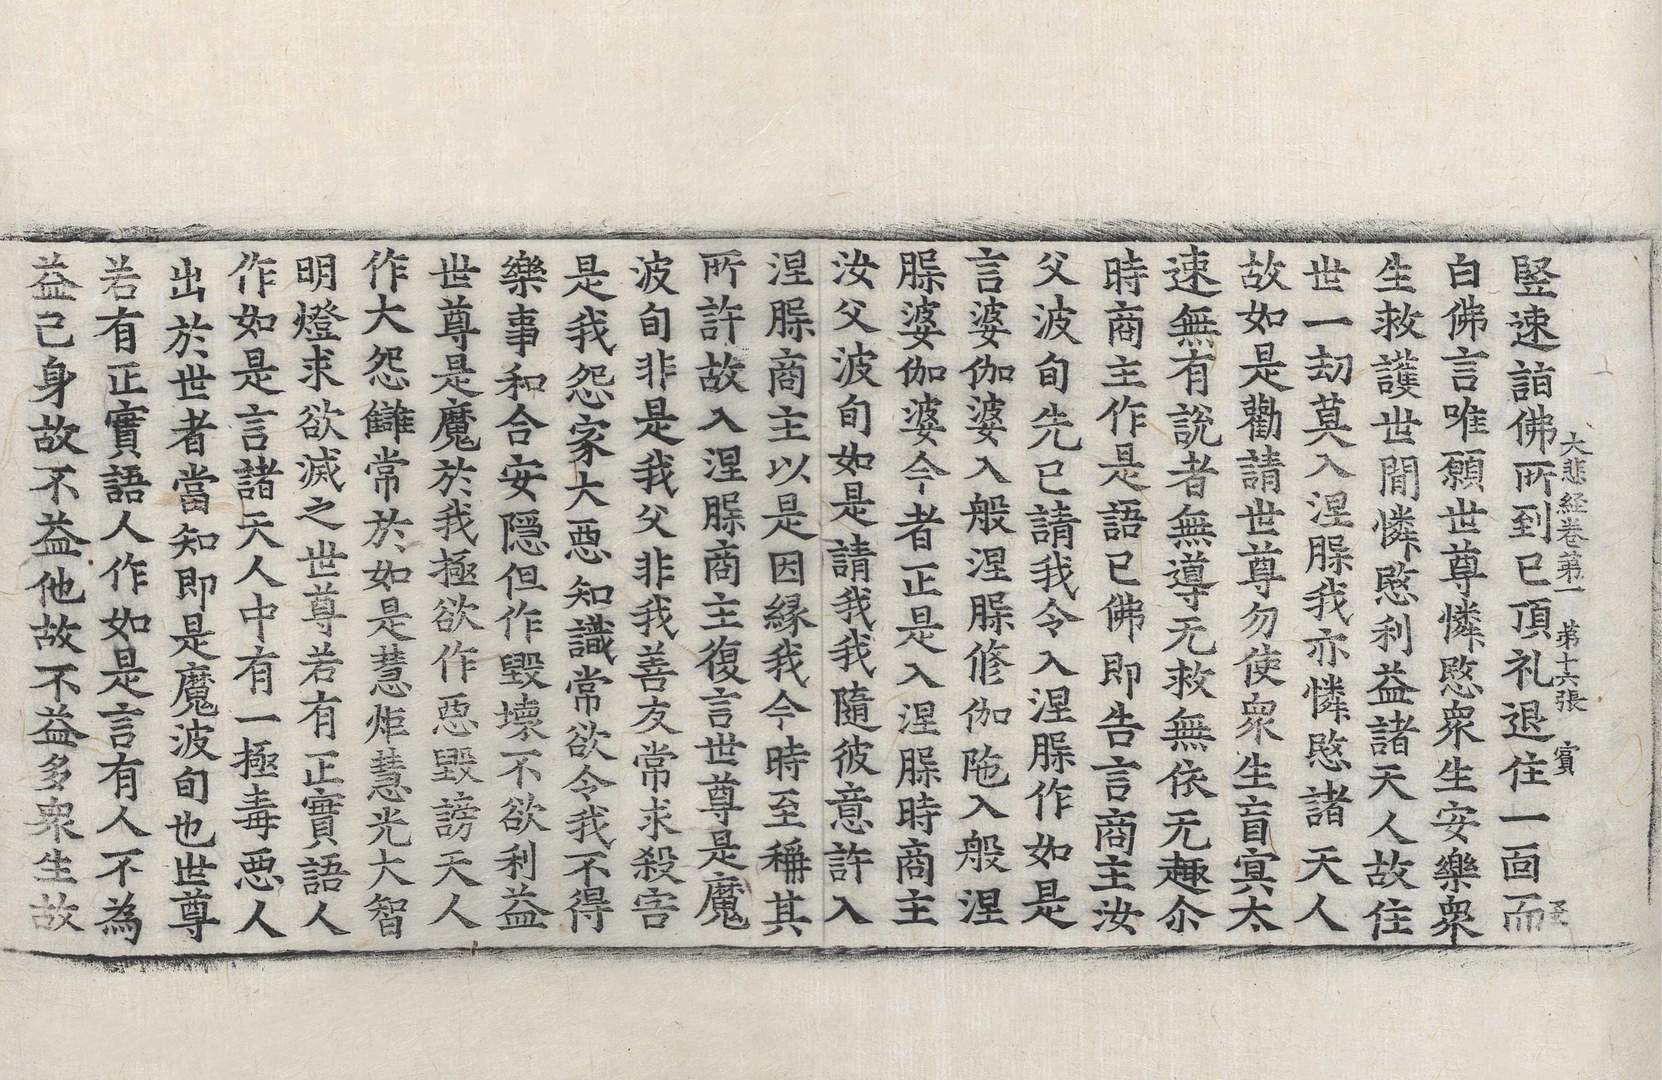 大悲経卷第一　第十六張　賓
竪速詣佛所到已頂礼退住一面而
白佛言唯願世尊憐愍衆生安樂衆
生救護世間憐愍利益諸天人故住
世一劫莫入涅槃我亦憐愍諸天人
故如是勸請世尊勿使衆生盲冥太
速無有說者無導无救無依无趣尒
時商主作是語已佛即告言商主汝
父波旬先已請我令入涅槃作如是
言婆伽婆入般涅槃修伽陁入般涅
槃婆伽婆今者正是入涅槃時商主
汝父波旬如是請我我隨彼意許入
涅槃商主以是因縁我今時至稱其
所許故入涅槃商主復言世尊是魔
波旬非是我父非我善友常求殺害
是我怨家大惡知識常欲令我不得
樂事和合安隱但作毀壞不欲利益
世尊是魔於我極欲作惡毀謗天人
作大怨讎常於如是慧炬慧光大智
明燈求欲滅之世尊若有正實語人
作如是言諸天人中有一極毒惡人
出於世者當知即是魔波旬也世尊
若有正實語人作如是言有人不為
益己身故不益他故不益多衆生故